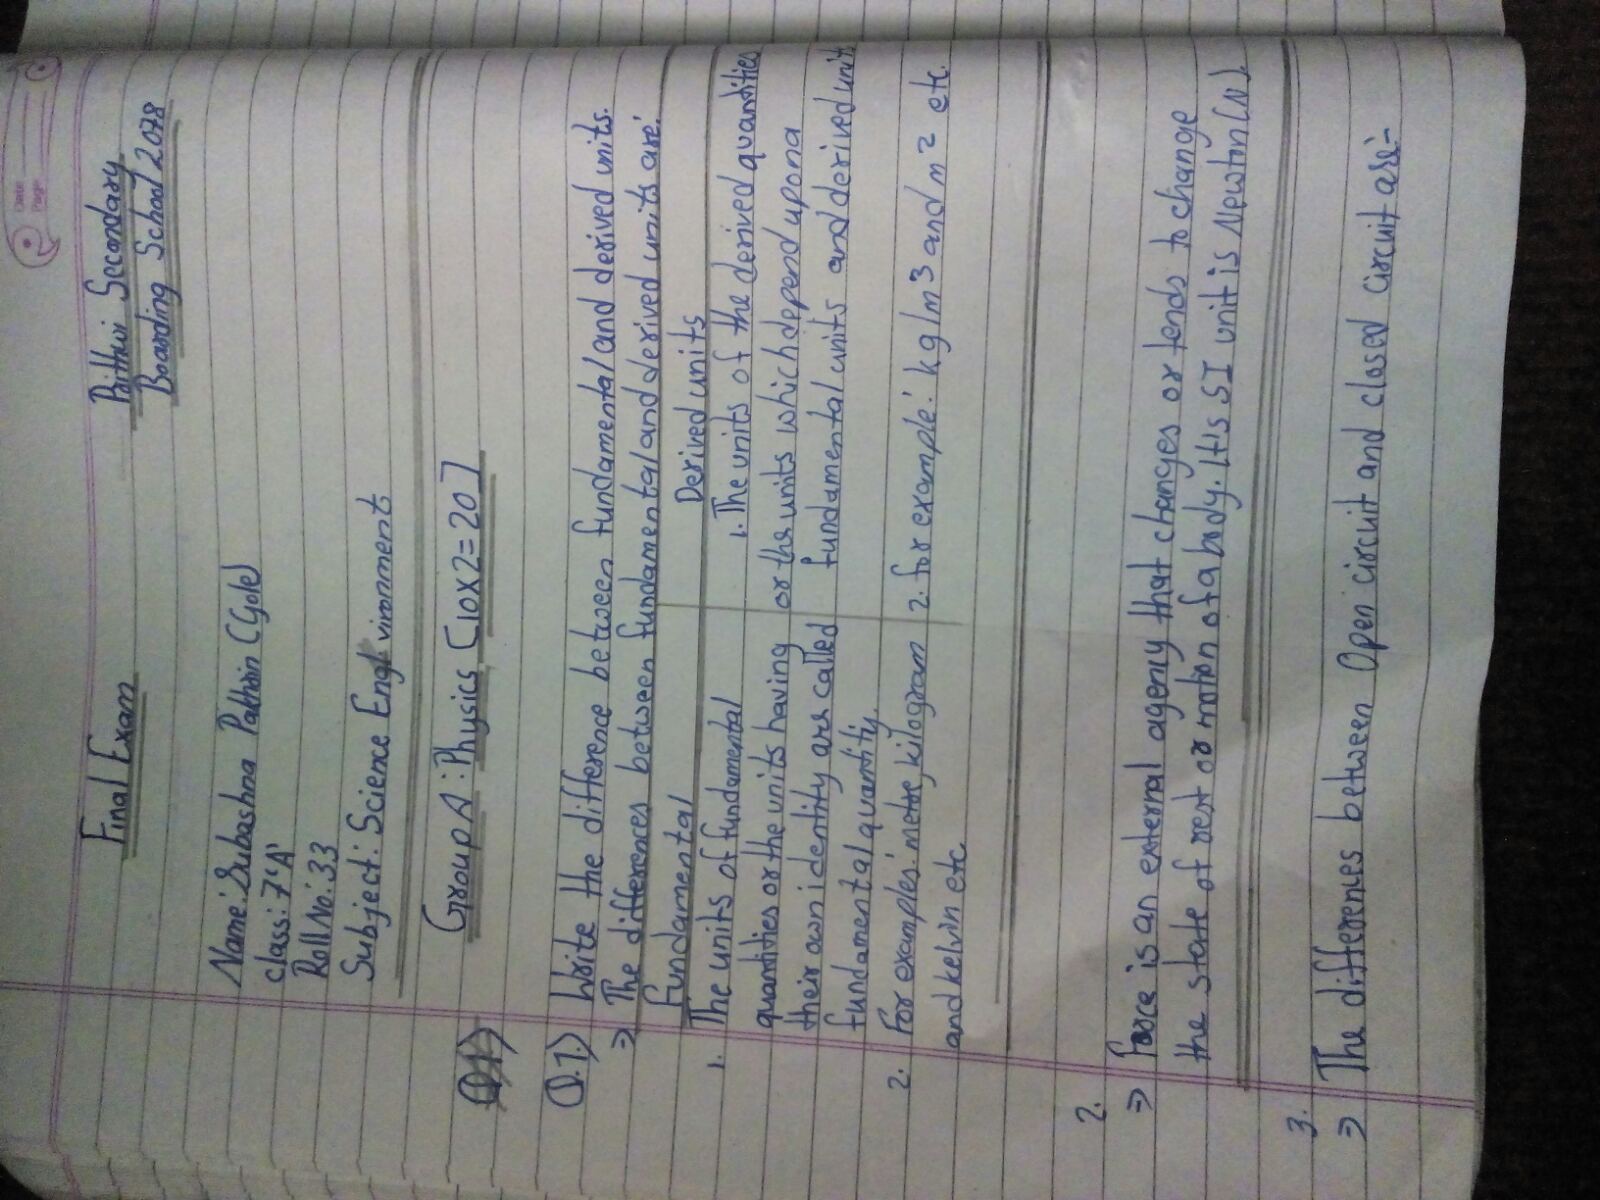 Date:
Page:
Final Exam
Prithvi Secondary
Boarding School 2078
Name: Subashna Pakhrin (Gole)
class: 7 'A'
Roll No: 33
Subject: Science Environment
Group A : Physics [10x2=20]
Q.1) Write the difference between fundamental and derived units.
⇒ The differences between fundamental and derived units are:
Fundamental
1. The units of fundamental
quantities or the units having
their own identity are called
fundamental quantity.
2. For examples: metre, kilogram
and kelvin etc.
Derived units
1. The units of the derived quantities
or the units which depend upon a
fundamental units and derived units
2. for example: kg/m3 and m2 etc.
2.
⇒ Force is an external agency that changes or tends to change
the state of rest or motion of a body. It's SI unit is Newton(N).
3.
⇒ The differences between Open circuit and closed circuit are:-